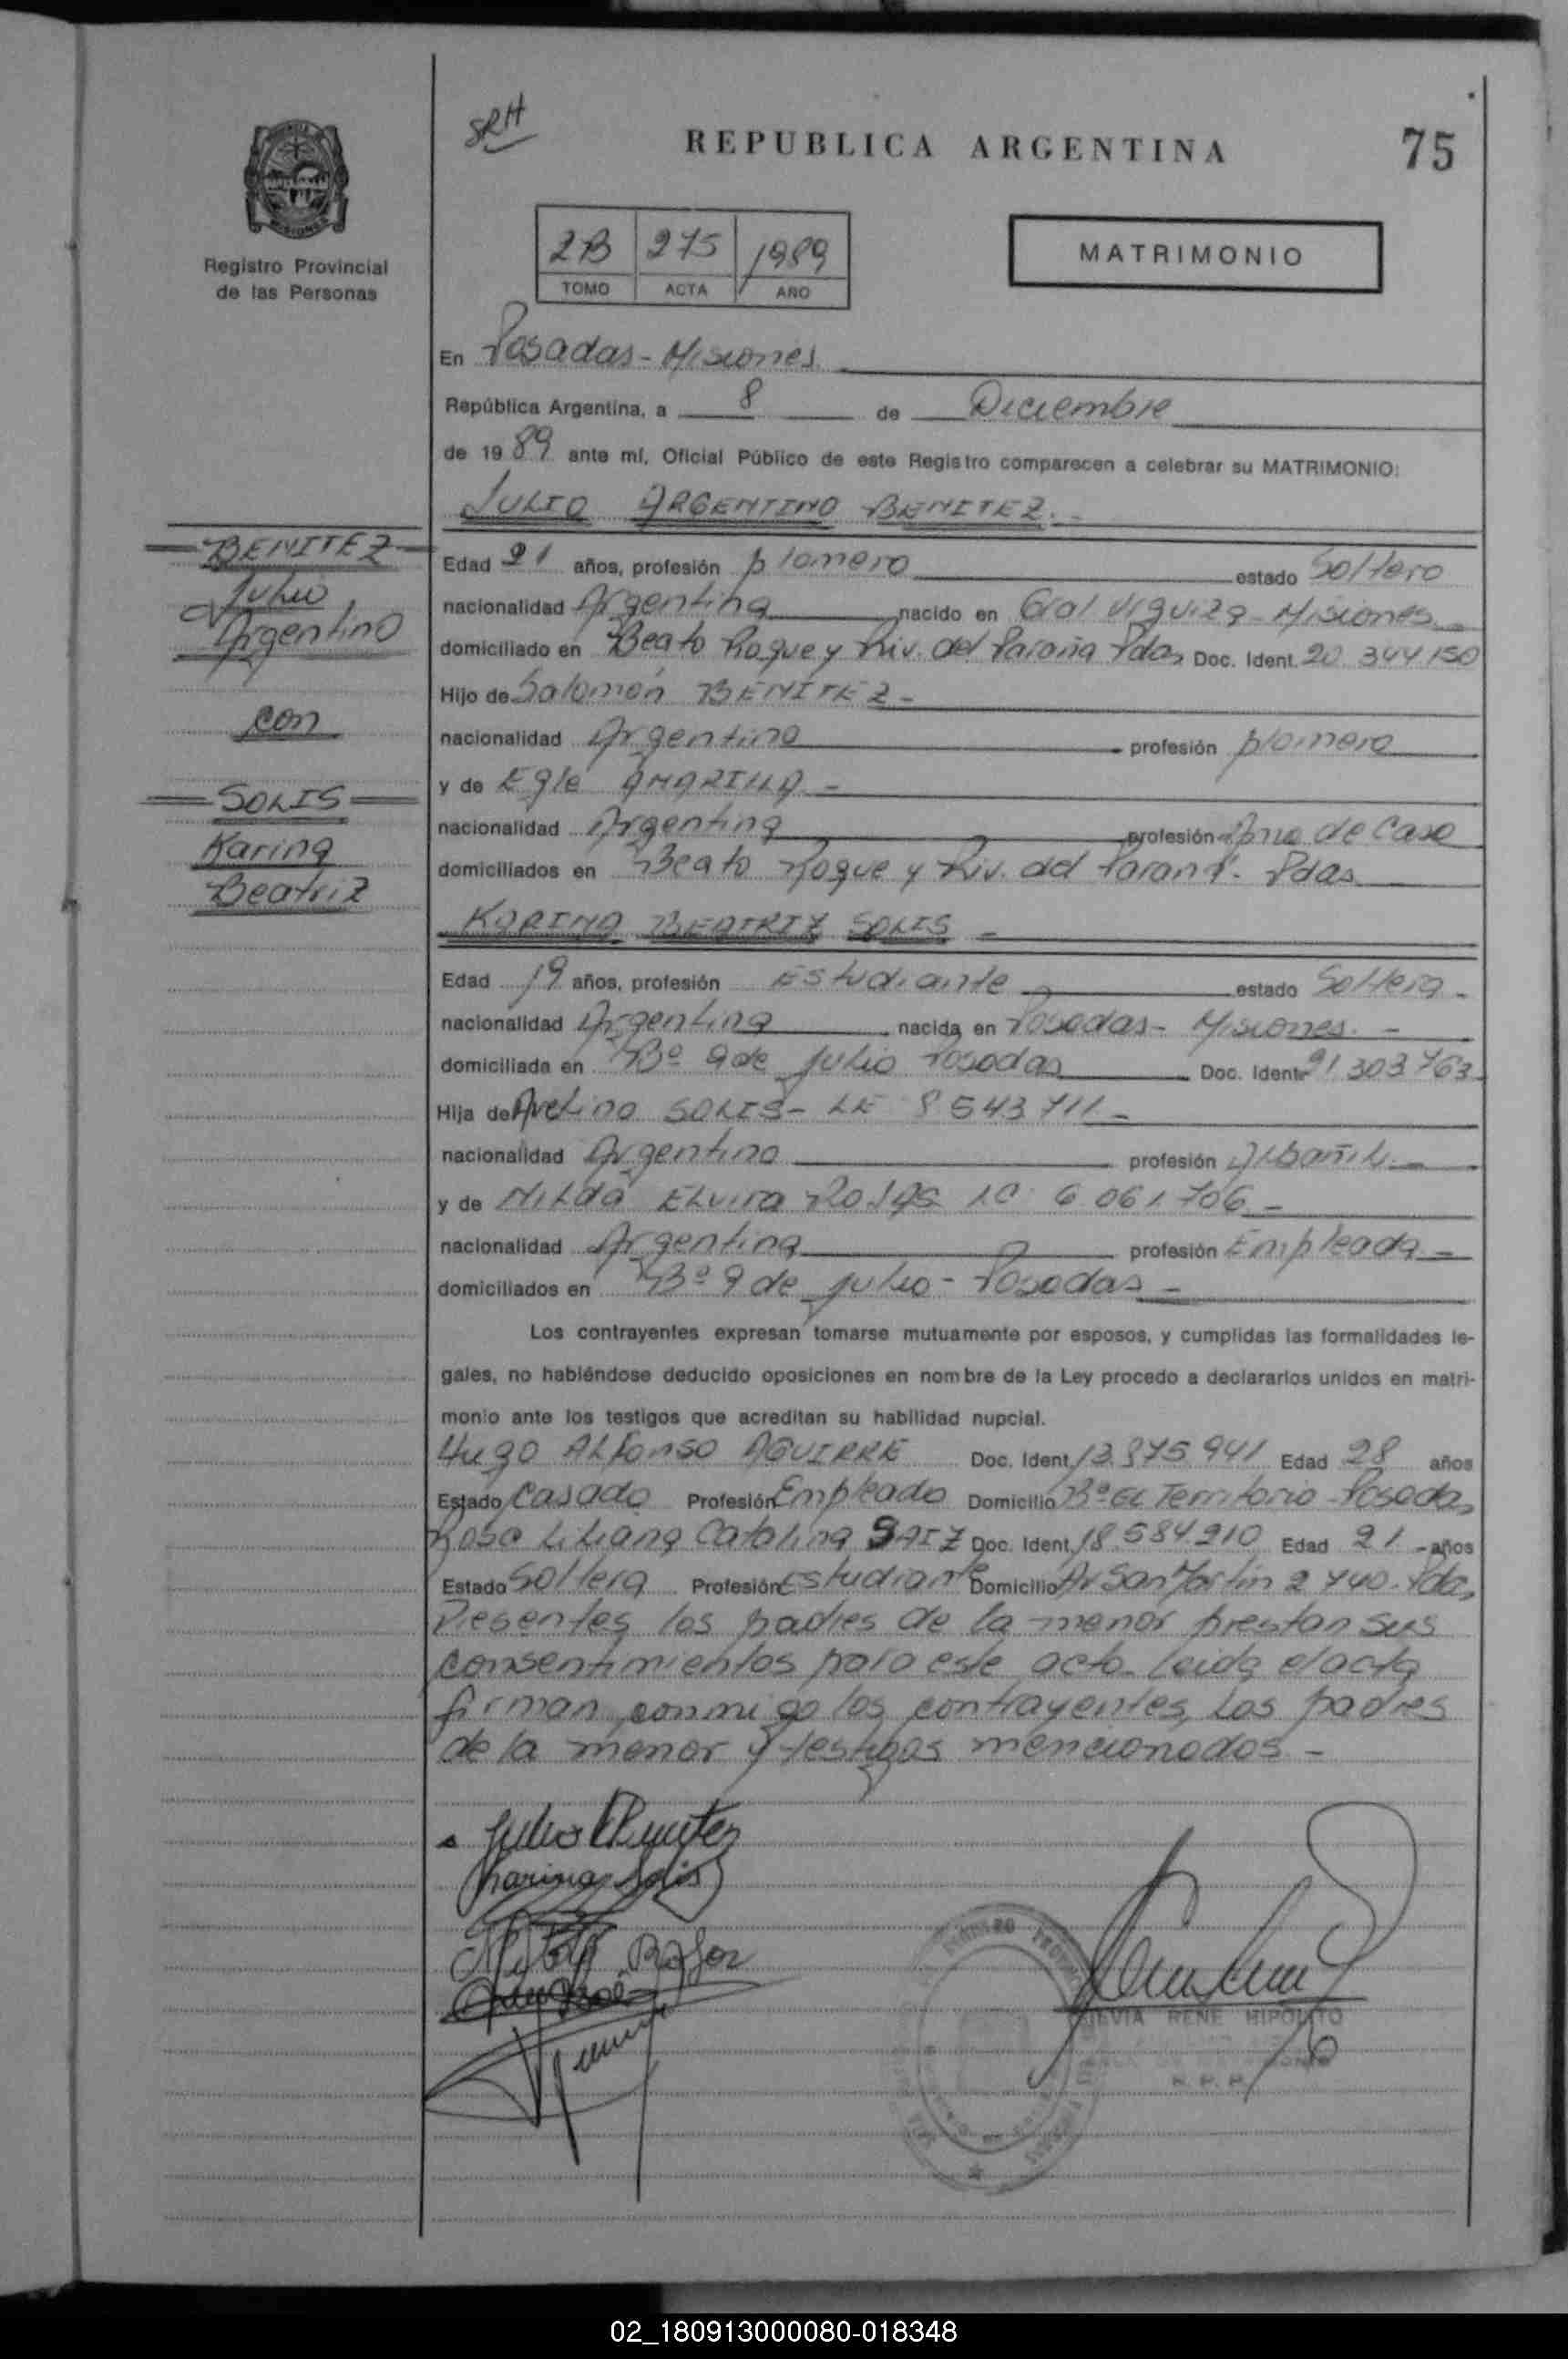 SRH
REPUBLICA ARGENTINA
75
Registro Provincial
de las Personas
2B 275 1989
TOMO ACTA AÑO
MATRIMONIO
En Posadas - Misiones
República Argentina, a 8 de Diciembre
de 1989 ante mí, Oficial Público de este Registro comparecen a celebrar su MATRIMONIO:
JULIO ARGENTINO BENITEZ.-
BENITEZ
Julio
Argentino
con
SOLIS
Karina
Beatriz
Edad 21 años, profesión plomero estado Soltero
nacionalidad Argentina nacido en Gral Urquiza - Misiones
domiciliado en Beato Roque y Riv. del Paraná Pdas Doc. Ident. 20 344 150
Hijo de Salomón BENITEZ -
nacionalidad Argentino profesión plomero
y de Egle AMARILLA -
nacionalidad Argentina profesión Ama de Casa
domiciliados en Beato Roque y Riv. del Paraná - Pdas
KARINA BEATRIZ SOLIS -
Edad 19 años, profesión Estudiante estado Soltera -
nacionalidad Argentina nacida en Posadas - Misiones. -
domiciliada en Bº 9 de Julio Posadas Doc. Ident. 21 303 763
Hija de Avelino SOLIS - LE 8543711 -
nacionalidad Argentino profesión Albañil -
y de Nilda Elvira ROJAS LC 6 061 706 -
nacionalidad Argentina profesión Empleada -
domiciliados en Bº 9 de Julio - Posadas -
Los contrayentes expresan tomarse mutuamente por esposos, y cumplidas las formalidades le-
gales, no habiéndose deducido oposiciones en nombre de la Ley procedo a declararlos unidos en matri-
monio ante los testigos que acreditan su habilidad nupcial.
Hugo Alfonso AGUIRRE Doc. Ident. 13.875 941 Edad 28 años
Estado Casado Profesión Empleado Domicilio Bº El Territorio - Posadas
Rosa Liliana Catalina SAIZ Doc. Ident. 18.584.210 Edad 21 - años
Estado Soltera Profesión Estudiante Domicilio Av San Martín 2740 - Pdas
Presentes los padres de la menor prestan sus
consentimientos para este acto. Leida el acta
firman conmigo los contrayentes, los padres
de la menor y testigos mencionados -
Julio Benitez
Karina Solis
Rojas
SILVIA RENE HIPOLITO
R. P. P.
02_180913000080-018348